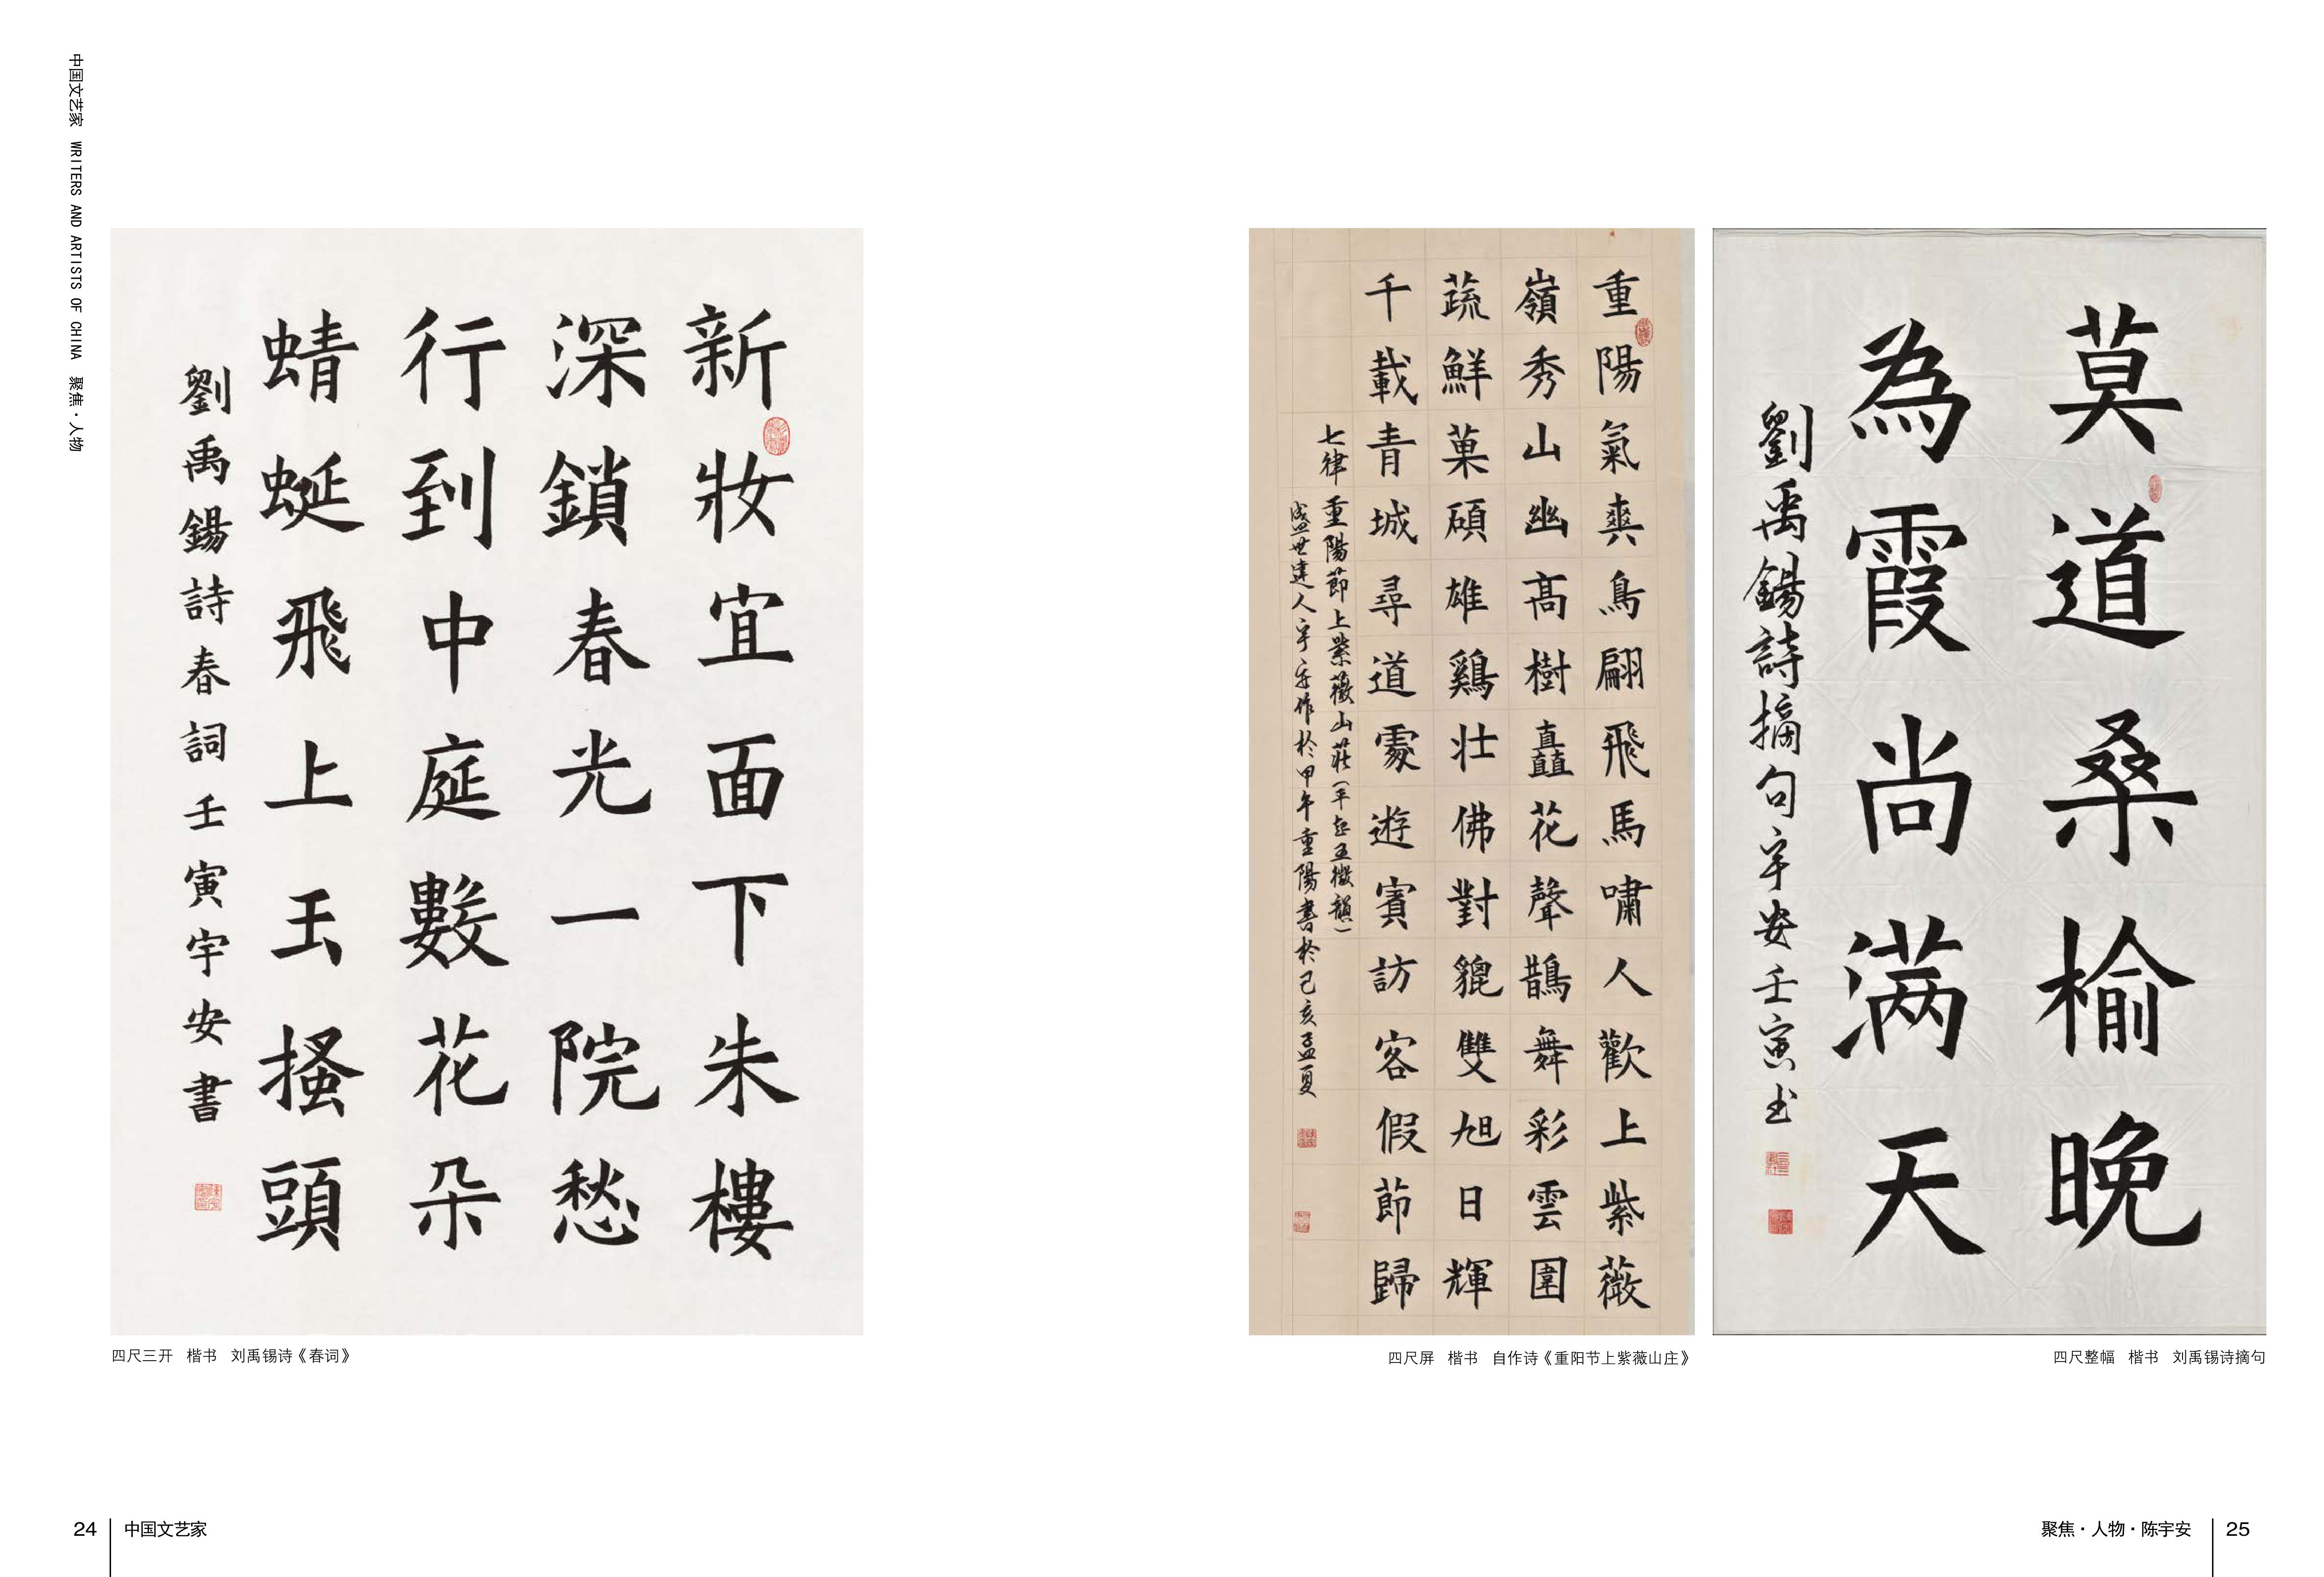 中国文艺家 WRITERS AND ARTISTS OF CHINA 聚焦·人物
新妝宜面下朱樓
深鎖春光一院愁
行到中庭數花朵
蜻蜓飛上玉搔頭
劉禹錫詩春詞壬寅宇安書
四尺三开 楷书 刘禹锡诗《春词》
重陽氣爽鳥翩飛馬嘯人歡上紫薇
嶺秀山幽高樹矗花聲鵲舞彩雲圍
蔬鮮菓碩雄鷄壯佛對貔雙旭日輝
千載青城尋道處遊賓訪客假節歸
七律 重陽節上紫薇山莊(平起五微韻)
盛世達人宇安作於甲午重陽書於己亥孟夏
四尺屏 楷书 自作诗《重阳节上紫薇山庄》
莫道桑榆晚
為霞尚满天
劉禹錫詩摘句宇安壬寅书
四尺整幅 楷书 刘禹锡诗摘句
24 中国文艺家
聚焦·人物·陈宇安 25